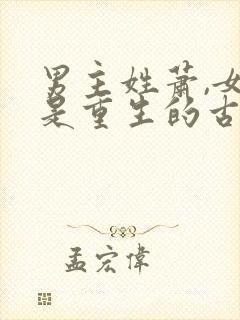 男主姓萧,女
是重生的古
孟宏伟